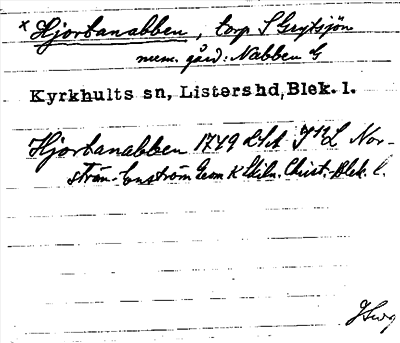 x Hjortanabben, torp S Grytsjön
num. gård: Nabben G
Kyrkhults sn, Listers hd, Blek. l.
Hjortanabben 1749 LSA Nor-
ström-Enström Geom K Skiln. Christ.-Blek. l.